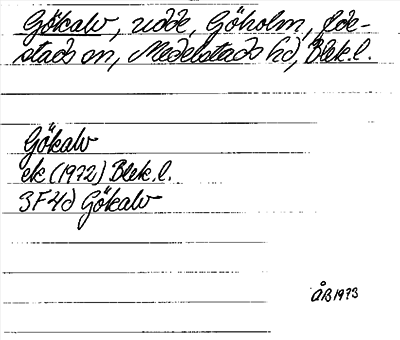 Gökalv, udde, Göholm, Ede-
stads sn, Medelstads hd, Blek.l.
Gökalv
ek (1972) Blek.l.
3F4d Gökalv
ÅB1973